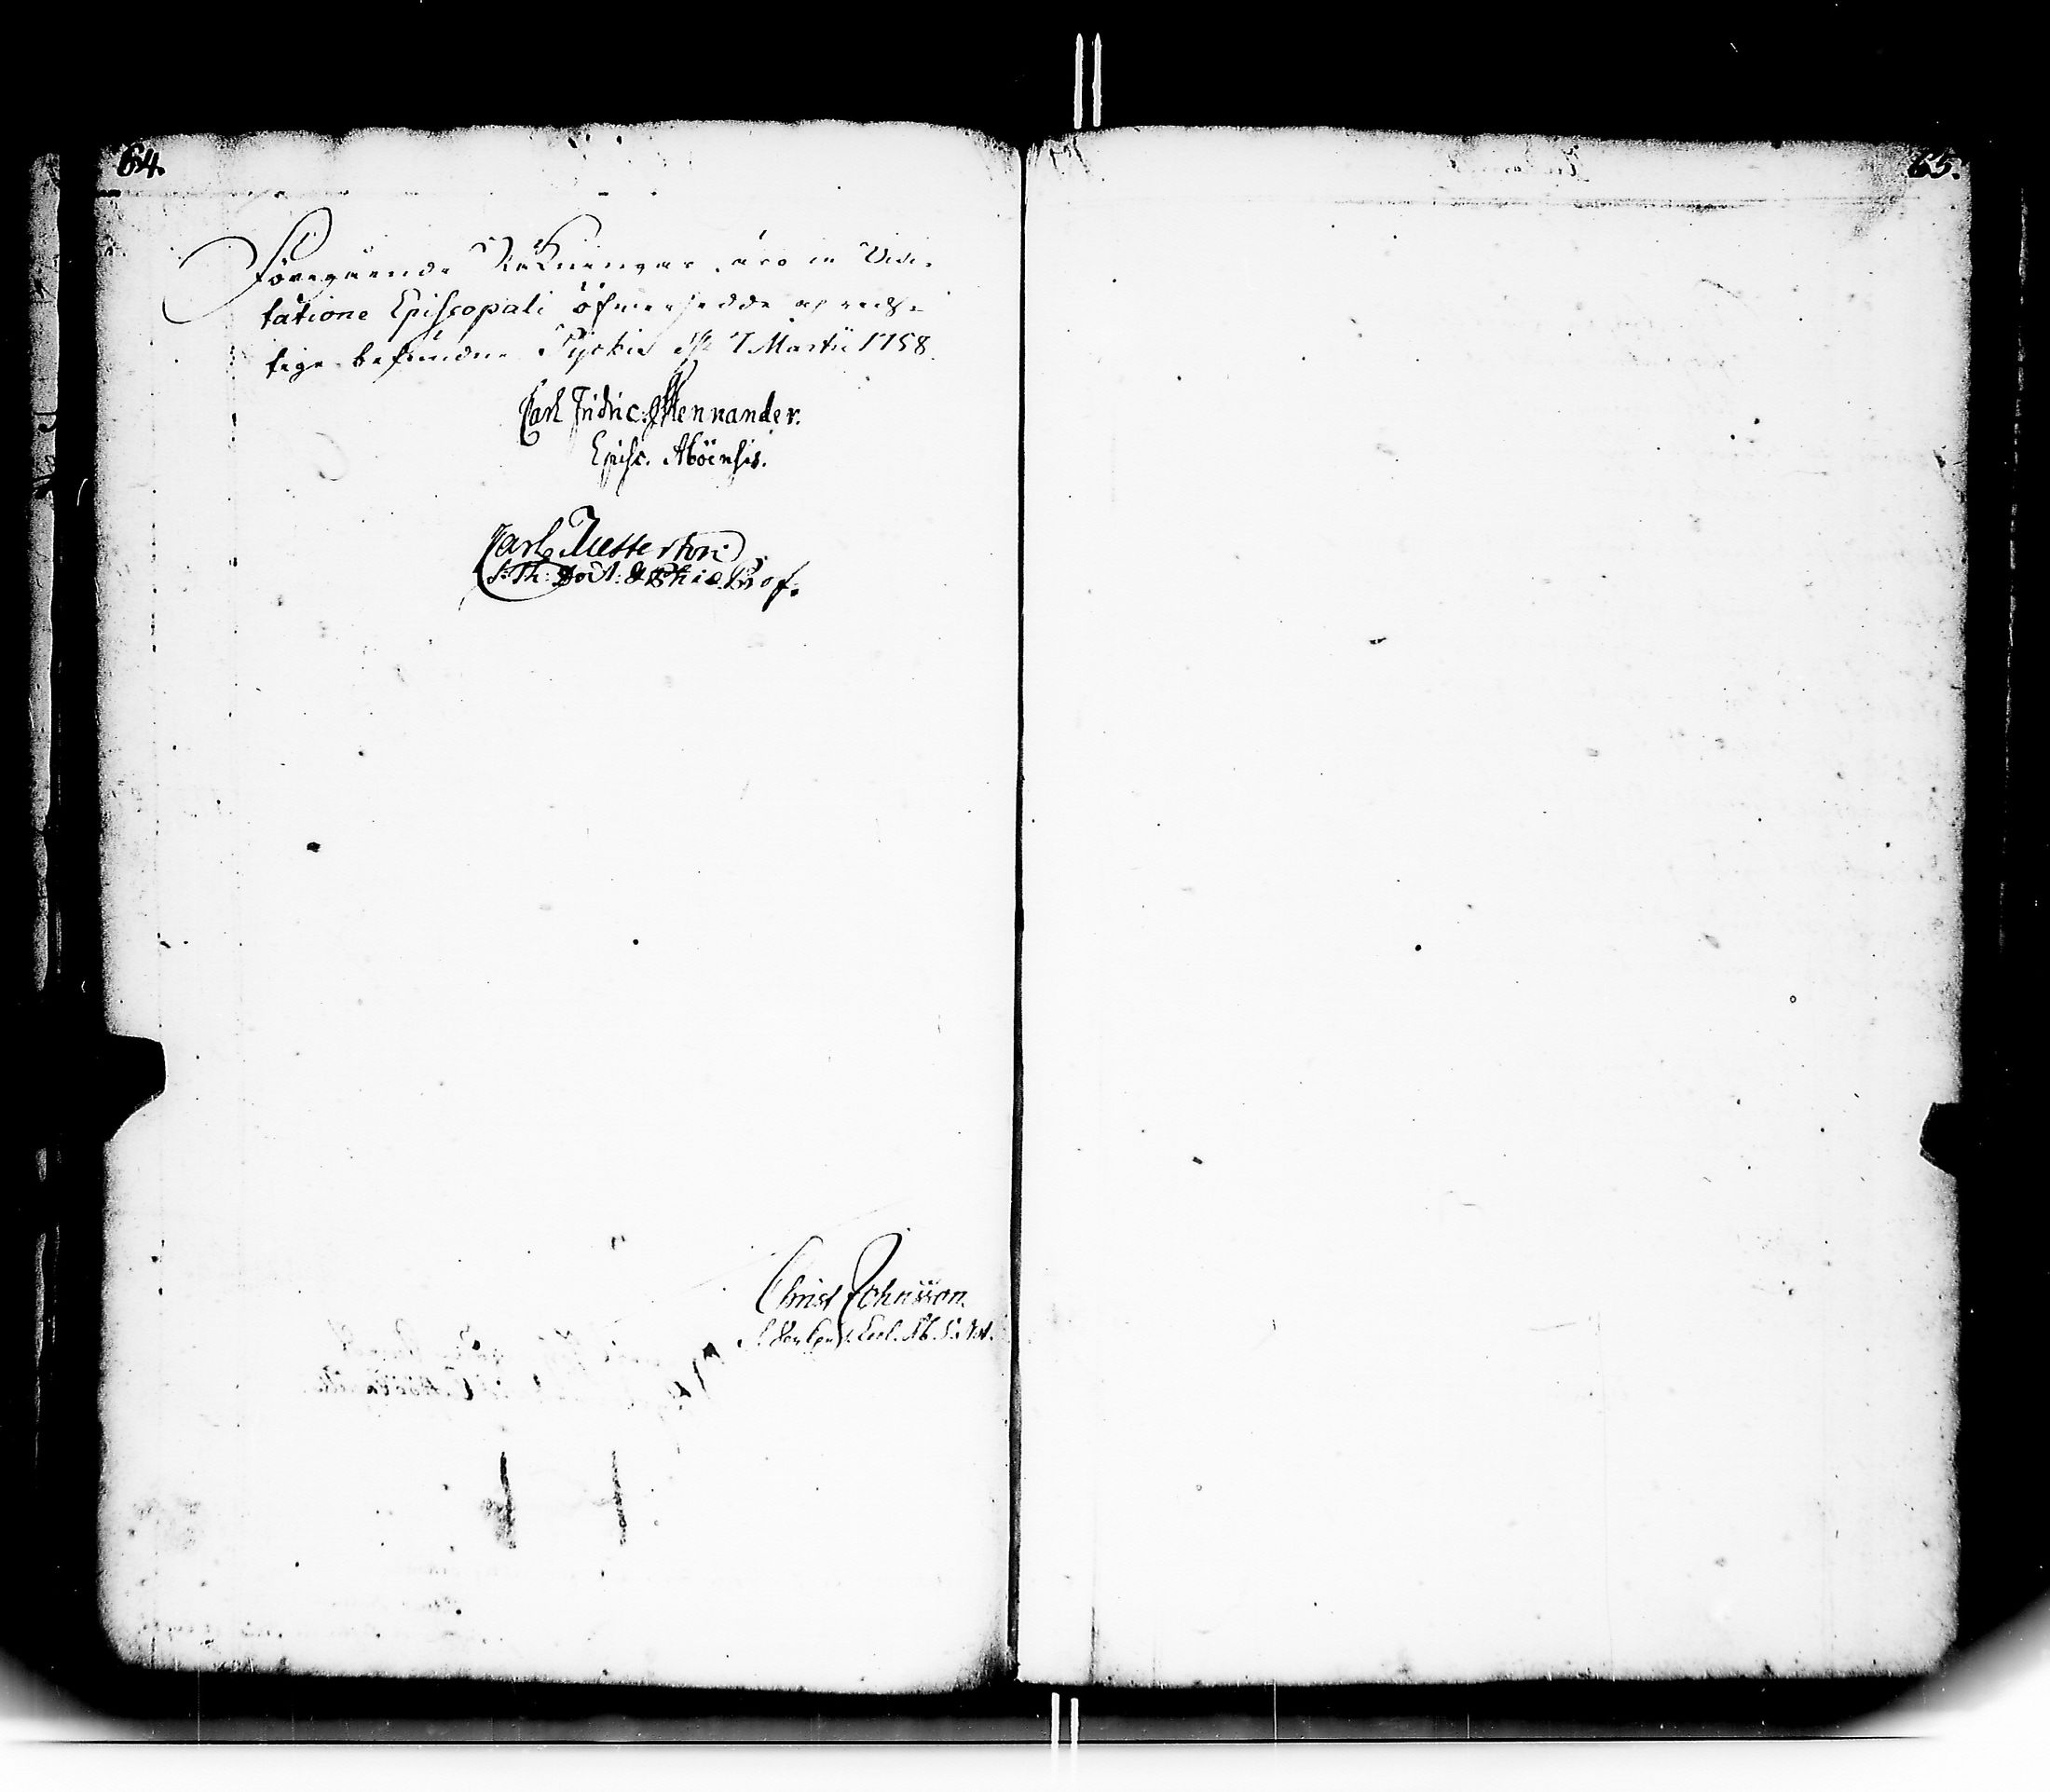 64.
Föregående Räkningar äro in Visi-
tatione Episcopali öfwersedde och rich-
tige befundne Pyckie d. 7 Martii 1758.
Carl Fridric: Mennander.
Episc. Aböensis.
Carl Mesterton
S: Th: Doct: & Phiæ Prof.
Christ Johnsson
65.